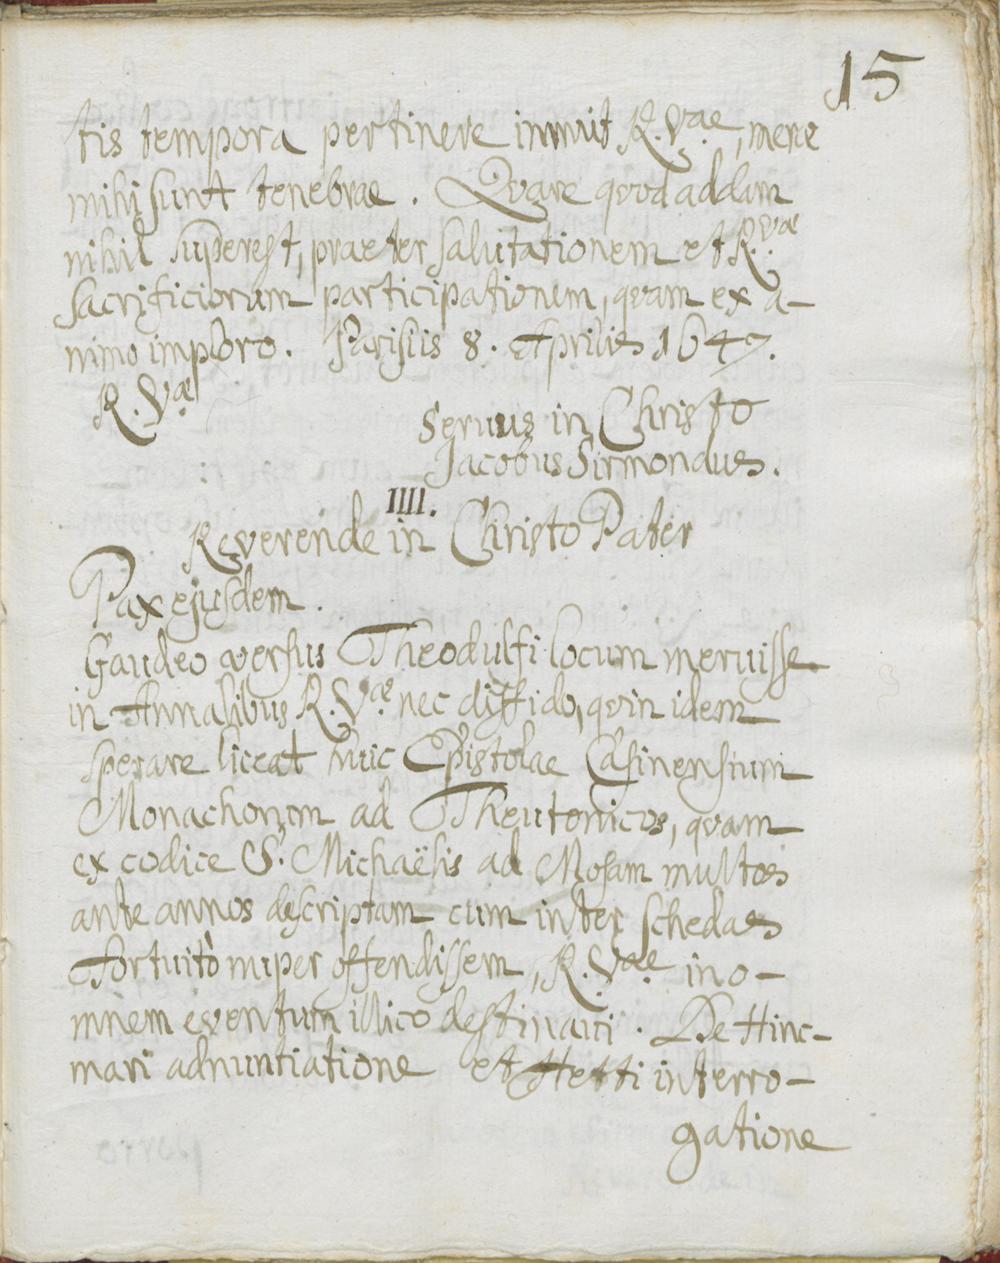 15
tis tempora pertinere innuit R. Vae, merae
mihi sunt tenebrae. Quare quod addam
nihil superest, praeter salutationem et R. Vae
sacrificiorum participationem, quam ex a-
nimo imploro. Parisiis 8. Aprilis 1647.
R. Vae
Servus in Christo
Jacobus Sirmondus.
IIII.
Reverende in Christo Pater
Pax ejusdem.
Gaudeo versus Theodulfi locum meruisse
in Annalibus R. Vae nec diffido, quin idem
sperare liceat huic Epistolae Casinensium
Monachorum ad Theutonicos, quam
ex codice S. Michaëlis ad Mosam multos
ante annos descriptam cum inter schedas
fortuitò nuper offendissem, R. Vae in o-
mnem eventum illico destinavi. De Hinc-
mari adnuntiatione et Hetti interro-
gatione